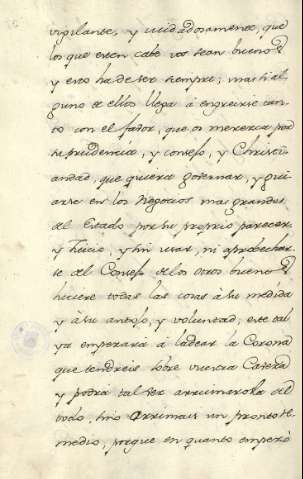 vigilante, y cuidadosamente, que
los que esten cabe vos sean buenos
y esto ha de ser siempre; mas si al
guno de ellos llega à engreirse tan
to con el fabor, que os merezca por
su prudencia, y consejo, y Christi
andad, que quiera gobernar, y gui
arse en los Negocios mas grandes
del Estado por su proprio parecer,
y Juicio, y sin usar, ni aprobechar
se del Consejo de los otros buenos
hiciere todas las cosas à su medida
y à su antojo, y voluntad, este tal
ya empezarà à ladear la Corona
que tendreis sobre vuestra Cabeza
y podrà tal ser arruinarosla del
todo, sino arrimais un pronto re
medio, porque en quanto empezò